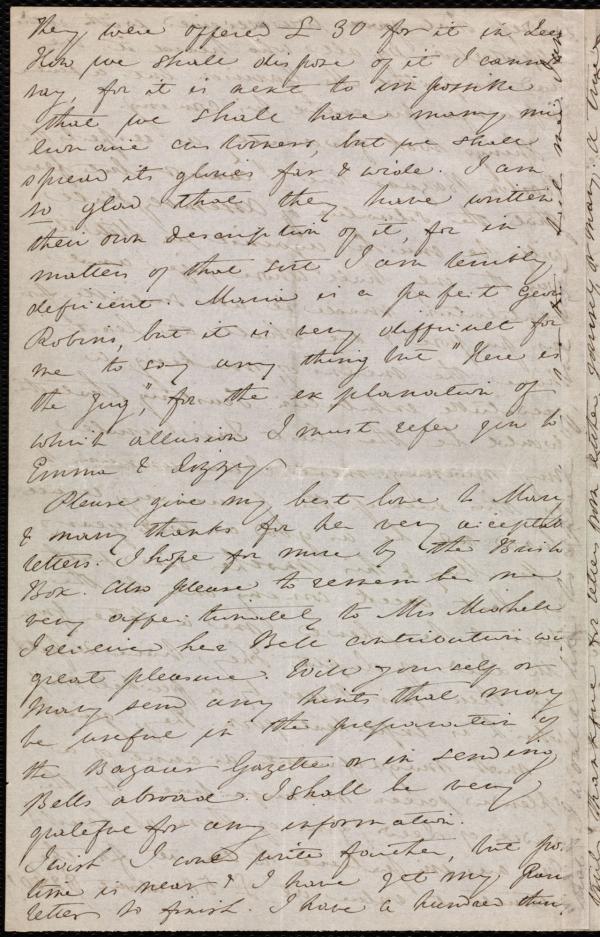 they were offered £ 30 for it in Lee
How we shall dispose of it I cannot
say, for it is next to impossible
that we shall have many mil
lionaire customers, but we shall
spread its glories far & wide. I am
so glad that they have written
their own description of it, for in
matters of that sort I am terribly
deficient. Maria is a perfect Geor
Robins, but it is very difficult for
me to say any thing but "Here is
the Jug," for the explanation of
which allusion I must refer you to
Emma & Lizzy.
Please give my best love to Mary
& many thanks for her very acceptable
letters. I hope for more by the
Box. Also please to remember me
very affectionately to Mrs Michell
I receive her Bell contribution wi
great pleasure. Will yourself or
Mary send any hints that may
be useful in the preparation of
the Bazaar Gazette or in sending
Bells abroad. I shall be very
grateful for any information.
I wish I could write further, but po
time is near & I have yet my
letter to finish. I have a hundred thin